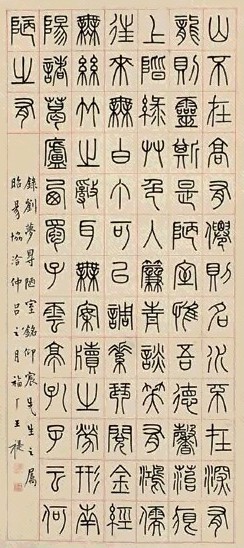 山不在高有僊則名水不在深有
龍則靈斯是陋室惟吾德馨苔痕
上階綠艸色入簾青談笑有鴻儒
往來無白丁可以調素琴閱金經
無絲竹之亂耳無案牘之勞形南
陽諸葛廬西蜀子雲亭孔子云何
陋之有
錄劉夢得陋室銘仰宸先生之屬
昭昜協洽仲呂之月福厂王褆